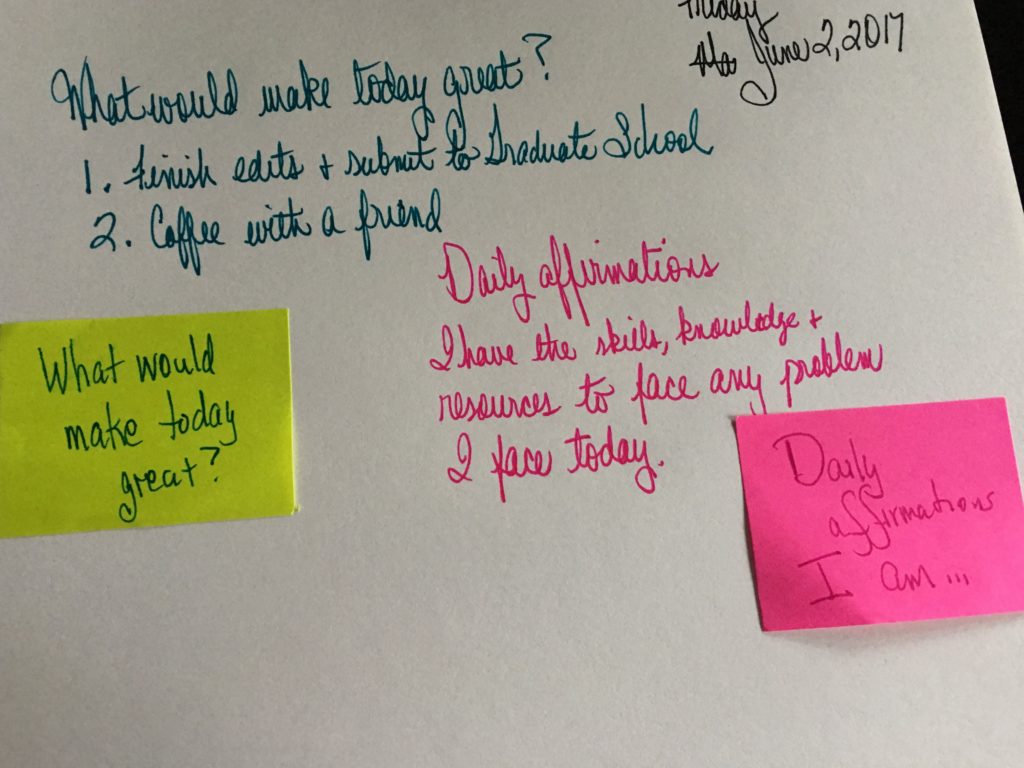 Friday
June 2, 2017
What would make today great?
1. Finish edits + submit to Graduate School
2. Coffee with a friend
Daily affirmations
I have the skills, knowledge +
resources to face any problem
I face today.
What would
make today
great?
Daily
affirmations
I am...